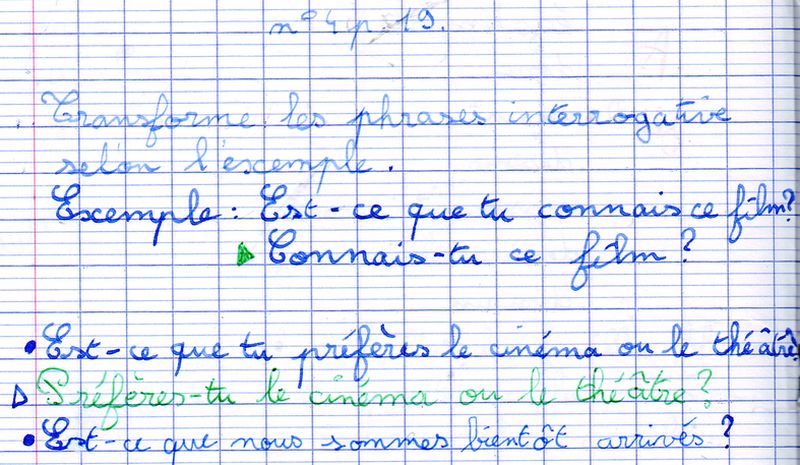 n° 4 p. 19.
Transforme les phrases interrogative
selon l'exemple.
Exemple : Est-ce que tu connais ce film?
Connais-tu ce film ?
• Est-ce que tu préfères le cinéma ou le théâtre
Préfères-tu le cinéma ou le théâtre ?
• Est-ce que nous sommes bientôt arrivés ?